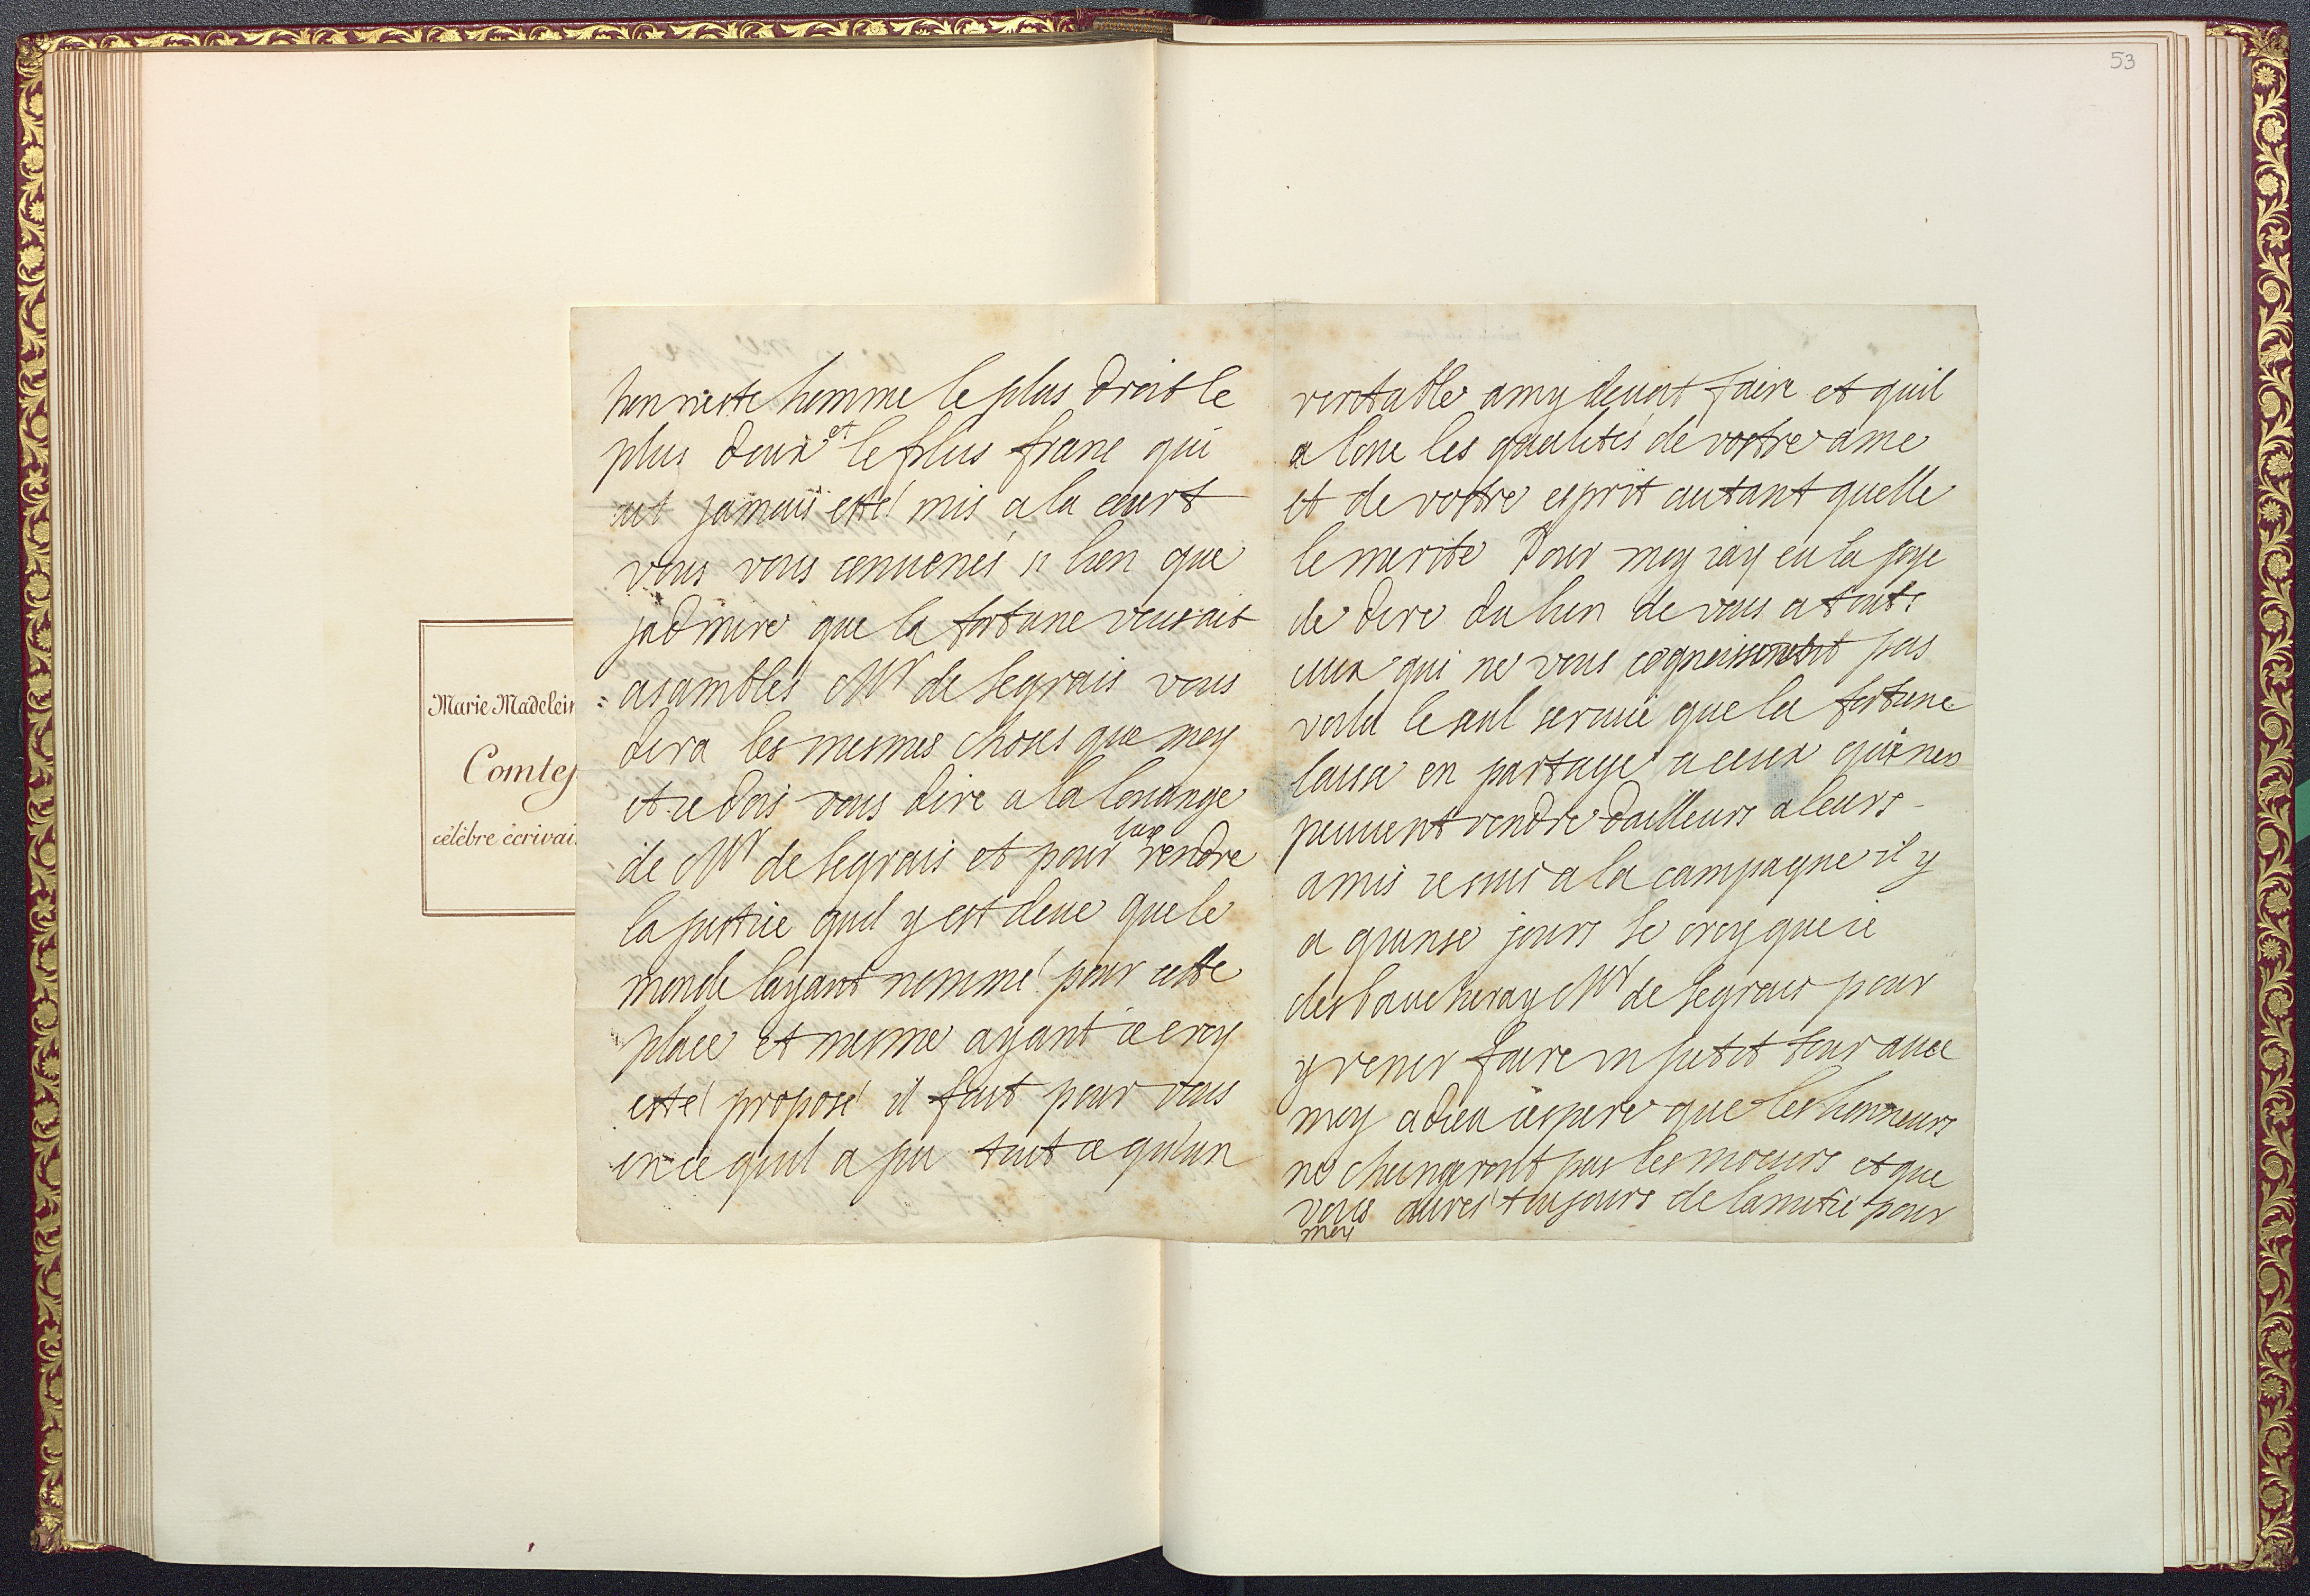 53
Marie Madelein
Comtes
célèbre écrivai
honneste homme le plus droit le
plus doux et le plus franc qui
ait jamais esté mis a la court
vous vous conuenés si bien que
jadmire que la fortune vous ait
asamblés Mr de Segrais vous
dira les mesmes choses que moy
et ie dois vous dire a la louange
de Mr de Segrais et pour luy rendre
la justice quil y est deue que le
monde layant nommé pour cette
place et mesme ayant ie croy
esté proposé il fait pour vous
en ce quil a pu tout ce qu'un
veritable amy deuoit faire et quil
a loue les qualités de vostre ame
et de vostre esprit autant quelle
le merite Pour moy iay eu la joye
de dire du bien de vous a touts
ceux qui ne vous cognoissoient pas
voila le seul seruice que la fortune
laisse en partage a ceux qui nen
peuuent rendre dailleurs a leurs
amis ie suis a la campagne il y
a quinse jours Je croy que ie
desbaucheray Mr de Segrais pour
y venir faire un petit tour auec
moy adieu iespere que les honneurs
ne changeront pas les moeurs et que
vous aures toujours de lamitié pour
moy